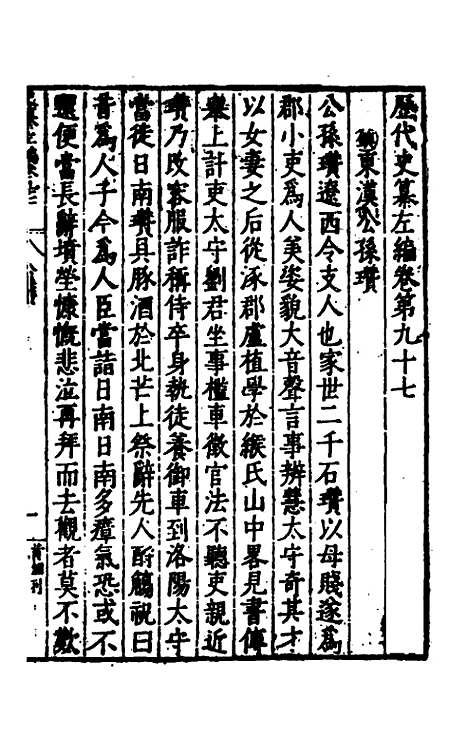 歷代史纂左編卷第九十七
鎮東漢公孫瓚
公孫瓚遼西令支人也家世二千石瓚以母賤遂為
郡小吏為人美姿貌大音聲言事辨慧太守奇其才
以女妻之后從涿郡盧植學於緱氏山中畧見書傳
舉上計吏太守劉君坐事檻車徵官法不聽吏親近
瓚乃改容服詐稱侍卒身執徒養御車到洛陽太守
當徒日南瓚具豚酒於北芒上祭辭先人酹觴祝曰
昔為人子今為人臣當詣日南日南多瘴氣恐或不
還便當長辭墳塋慷慨悲泣再拜而去觀者莫不歎
一